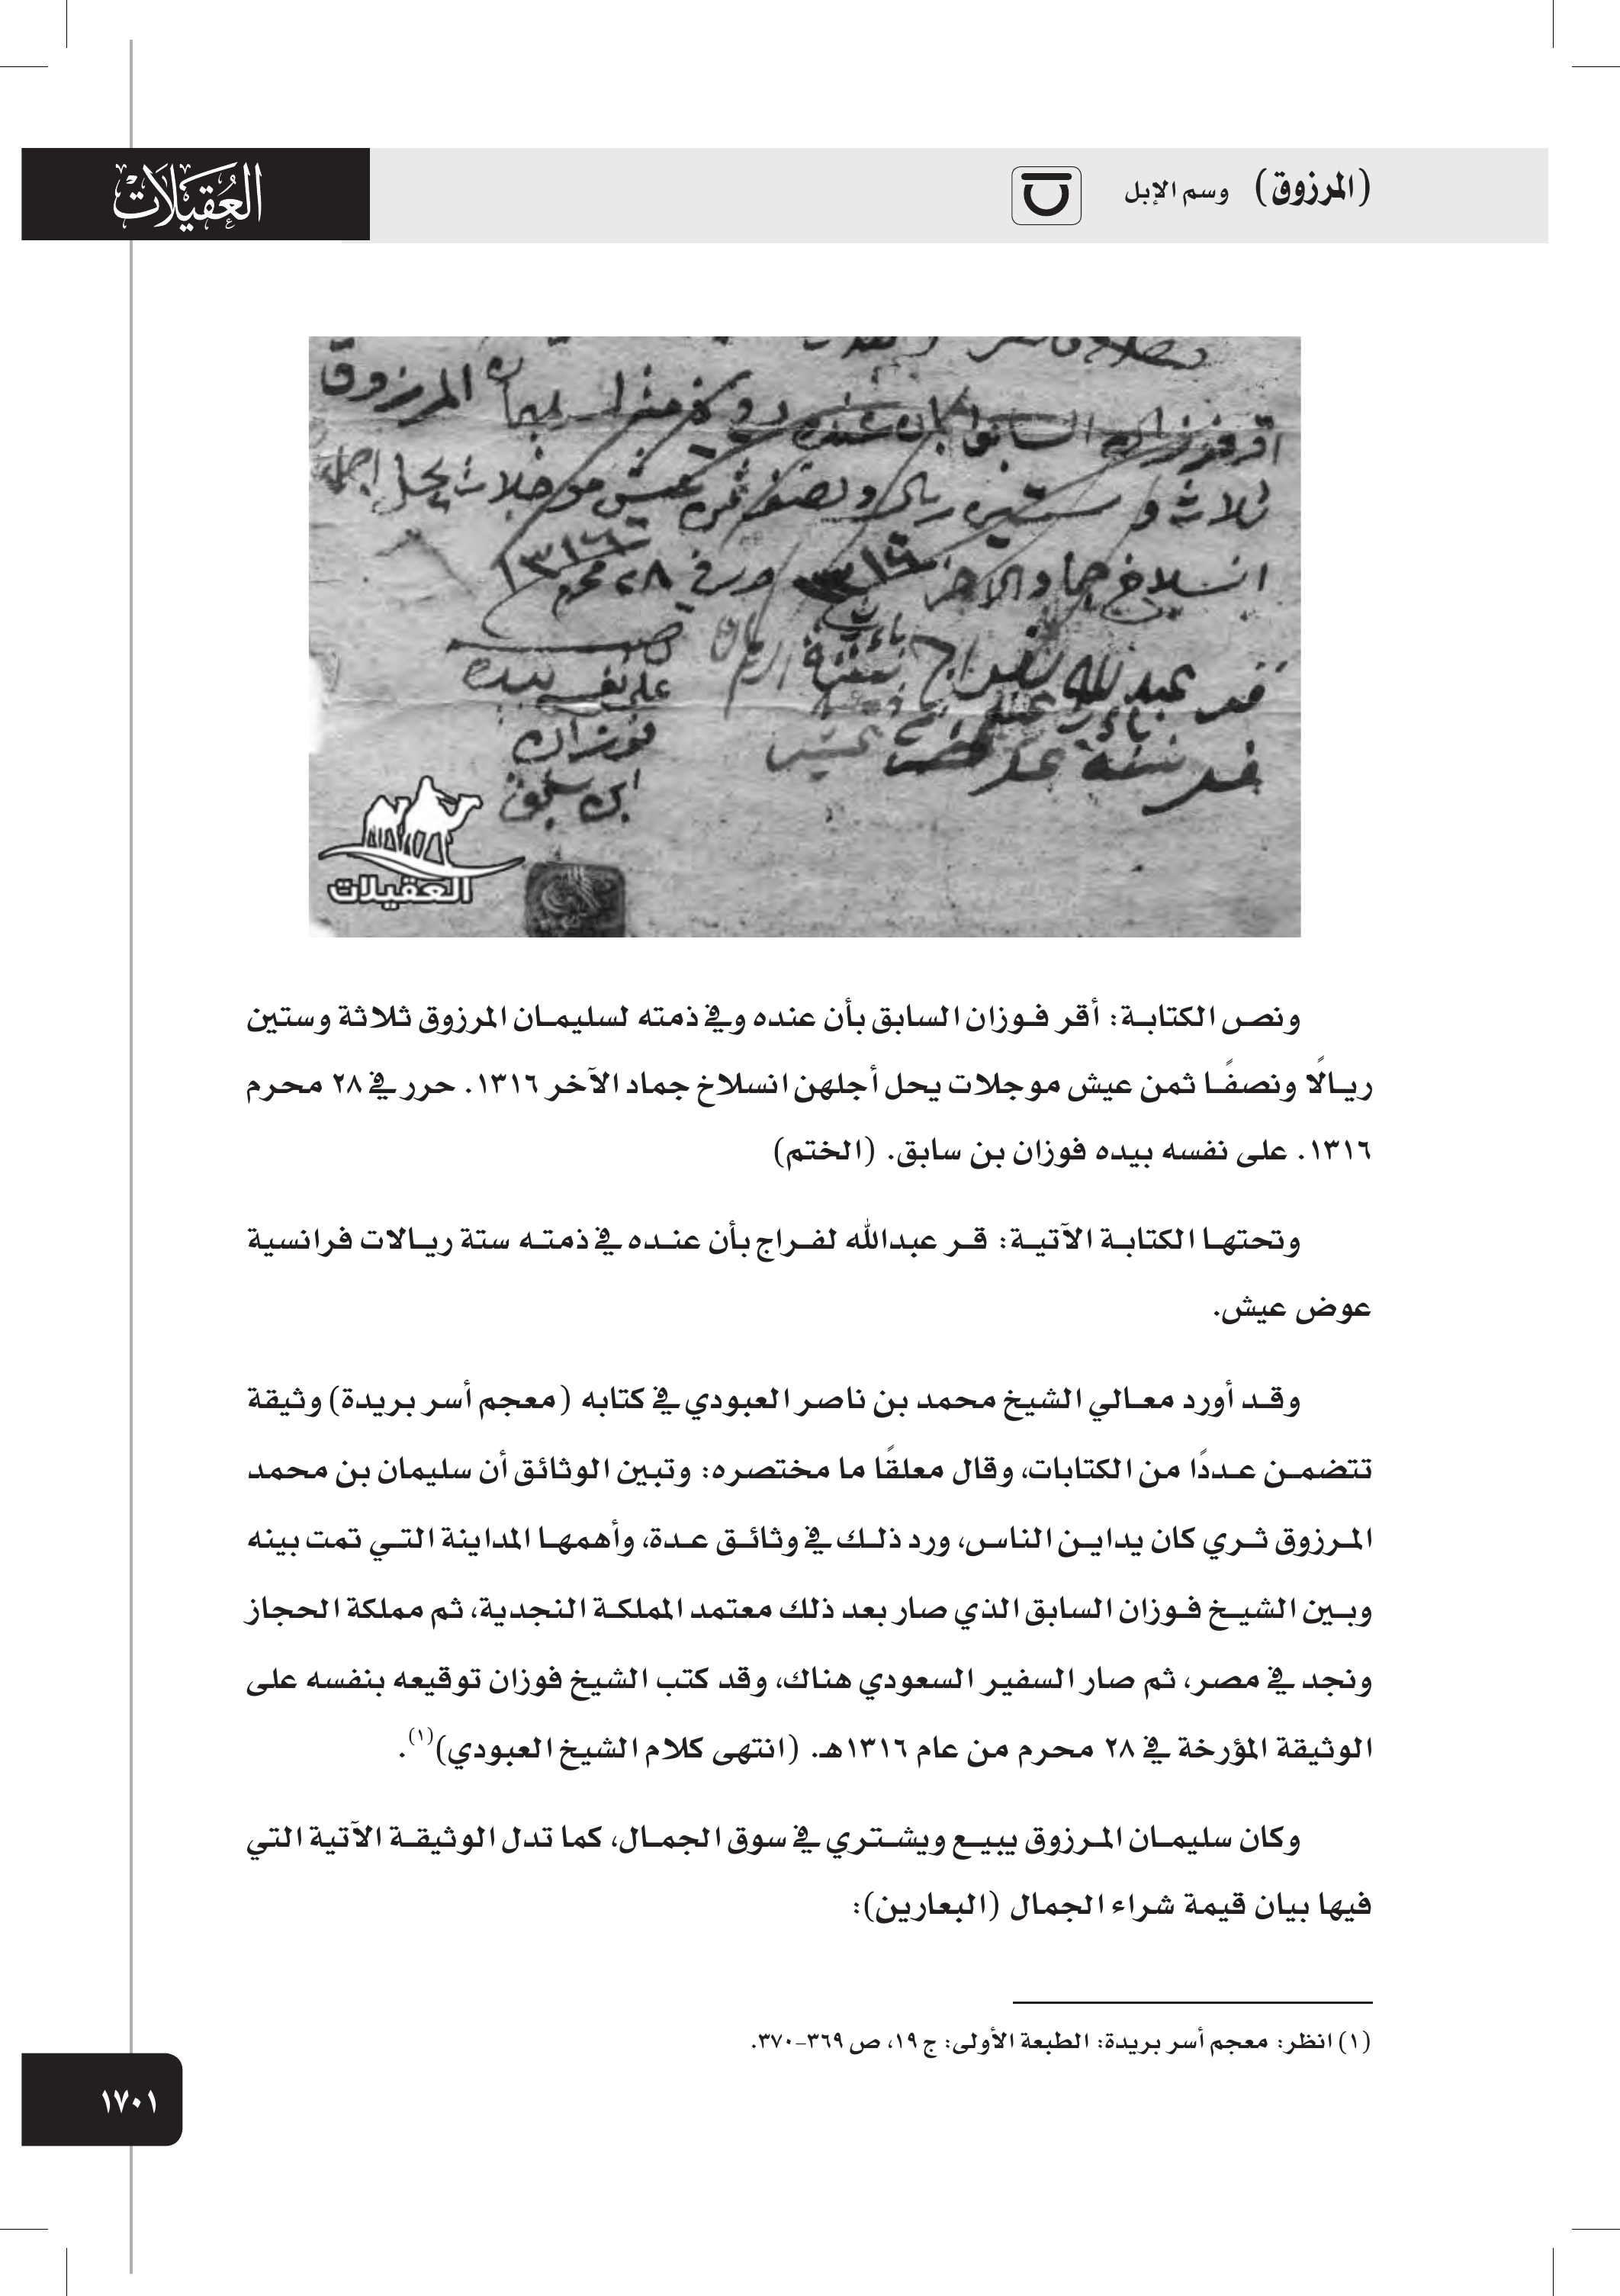 العقيلات
(المرزوق) وسم الإبل
اقر فوزان السابق بان عنده وفي ذمته لسليمان المرزوق
ثلاث وستين ريال ونصف ثمن عيش موجلات يحل اجلهن
انسلاخ جماد الاخر ١٣١٦ حرر في ٢٨ محرم ١٣١٦
على نفسه بيده
فوزان
ابن سابق
قر عبدالله لفراج بان
عنده
العقيلات
ونص الكتابة: أقر فوزان السابق بأن عنده وفي ذمته لسليمان المرزوق ثلاثة وستين
ريالًا ونصفًا ثمن عيش موجلات يحل أجلهن انسلاخ جماد الآخر ١٣١٦. حرر في ٢٨ محرم
١٣١٦. على نفسه بيده فوزان بن سابق. (الختم)
وتحتها الكتابة الآتية: قر عبدالله لفراج بأن عنده في ذمته ستة ريالات فرانسية
عوض عيش.
وقد أورد معالي الشيخ محمد بن ناصر العبودي في كتابه (معجم أسر بريدة) وثيقة
تتضمن عددًا من الكتابات، وقال معلقًا ما مختصره: وتبين الوثائق أن سليمان بن محمد
المرزوق ثري كان يداين الناس، ورد ذلك في وثائق عدة، وأهمها المداينة التي تمت بينه
وبين الشيخ فوزان السابق الذي صار بعد ذلك معتمد المملكة النجدية، ثم مملكة الحجاز
ونجد في مصر، ثم صار السفير السعودي هناك، وقد كتب الشيخ فوزان توقيعه بنفسه على
الوثيقة المؤرخة في ٢٨ محرم من عام ١٣١٦هـ. (انتهى كلام الشيخ العبودي)(١).
وكان سليمان المرزوق يبيع ويشتري في سوق الجمال، كما تدل الوثيقة الآتية التي
فيها بيان قيمة شراء الجمال (البعارين):
(١) انظر: معجم أسر بريدة: الطبعة الأولى: ج ١٩، ص ٣٦٩-٣٧٠.
١٧٠١